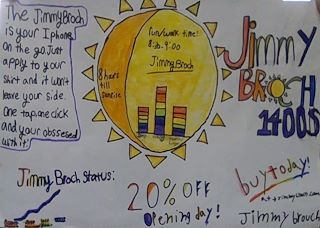 The JimmyBroch
is your Iphone
on the go Just
apply to your
shirt and it won't
leave your side.
One tap, one click
and your obssesed
with it!
run/work time!
8:30-9:00
JimmyBroch
8 hours
till
sunrise
Jimmy
BROCH
1400$
Jimmy Broch Status:
20% OFF
opening day!
buy today!
Jimmy brouch